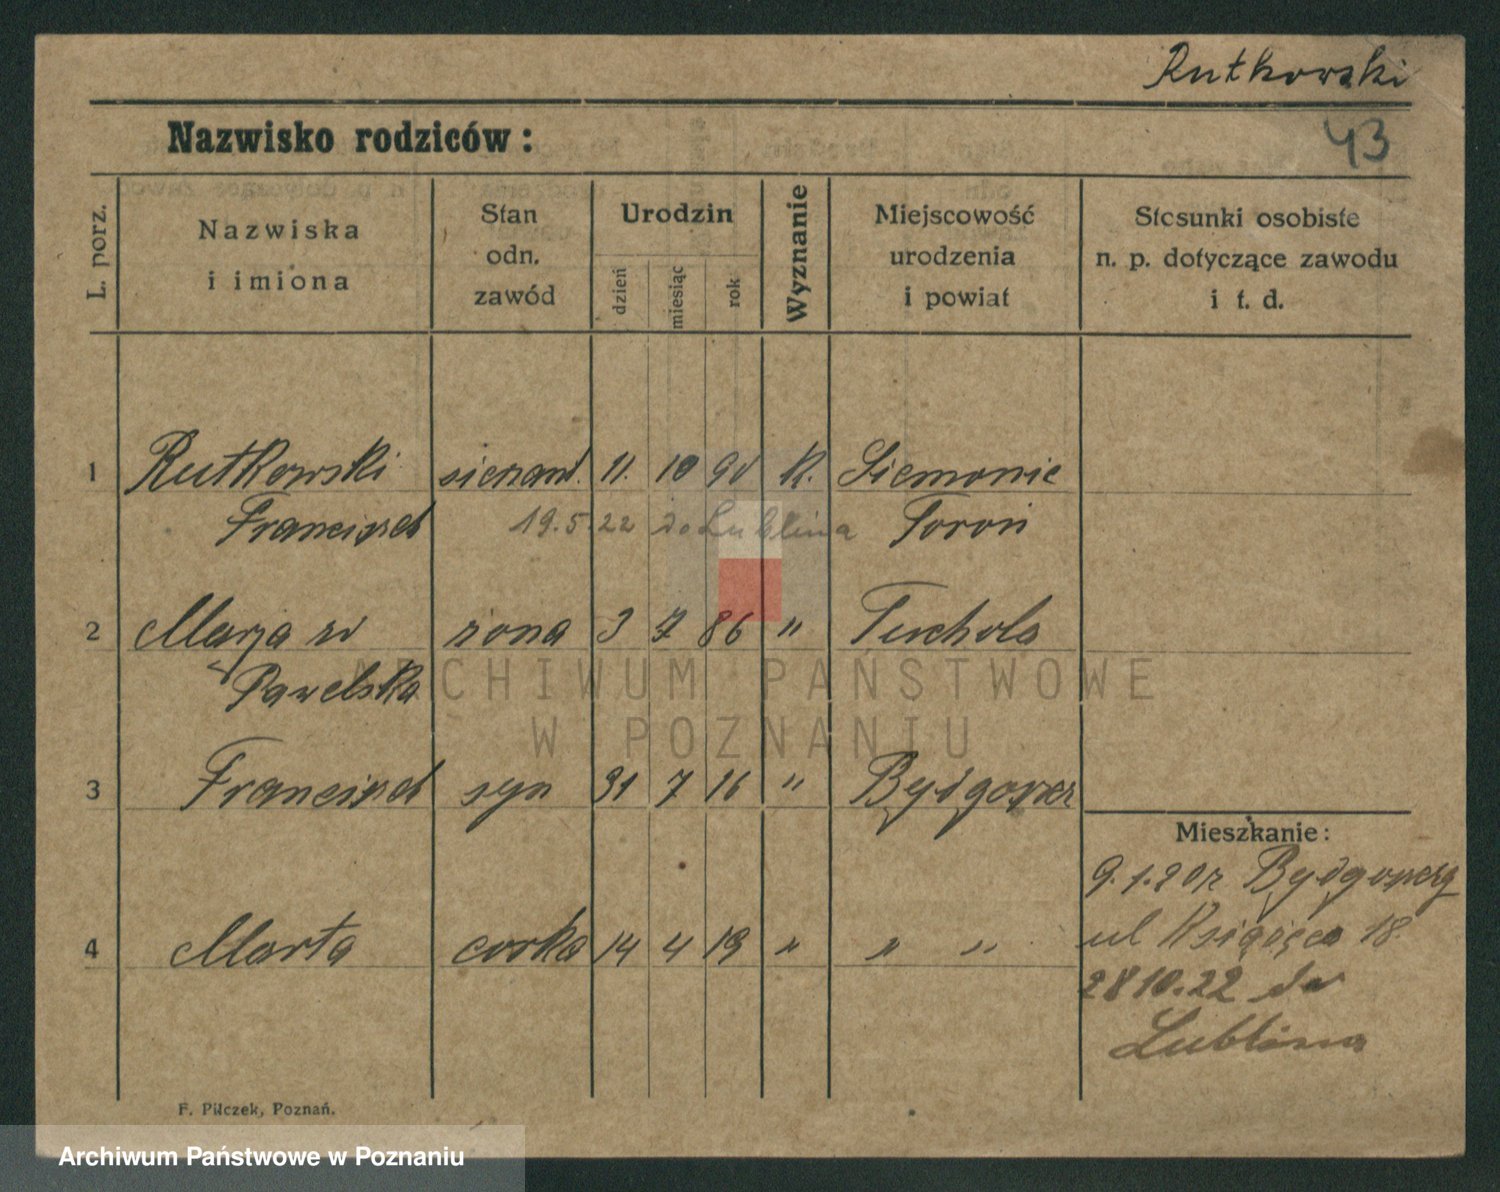 Rutkowski
43
Nazwisko rodziców:
L. porz.
Nazwiska
i imiona
Stan
odn.
zawód
Urodzin
dzień
miesiąc
rok
Wyznanie
Miejscowość
urodzenia
i powiat
Stosunki osobiste
n. p. dotyczące zawodu
i t. d.
1 Rutkowski 11. 10 90 K.
Franciszek 19.5.22 do Lublina Toroń
2 Marja zd żona 3 7 86 " Tuchola
Pawelska
3 Franciszek syn 31 7 16 " Bydgoszcz
4 Marta corka 14 4 19 " " "
Mieszkanie:
9.1.20r Bydgoszcz
ul Książęca 18.
28 10.22 do
Lublina
F. Pilczek, Poznań.
ARCHIWUM PAŃSTWOWE
W POZNANIU
Archiwum Państwowe w Poznaniu